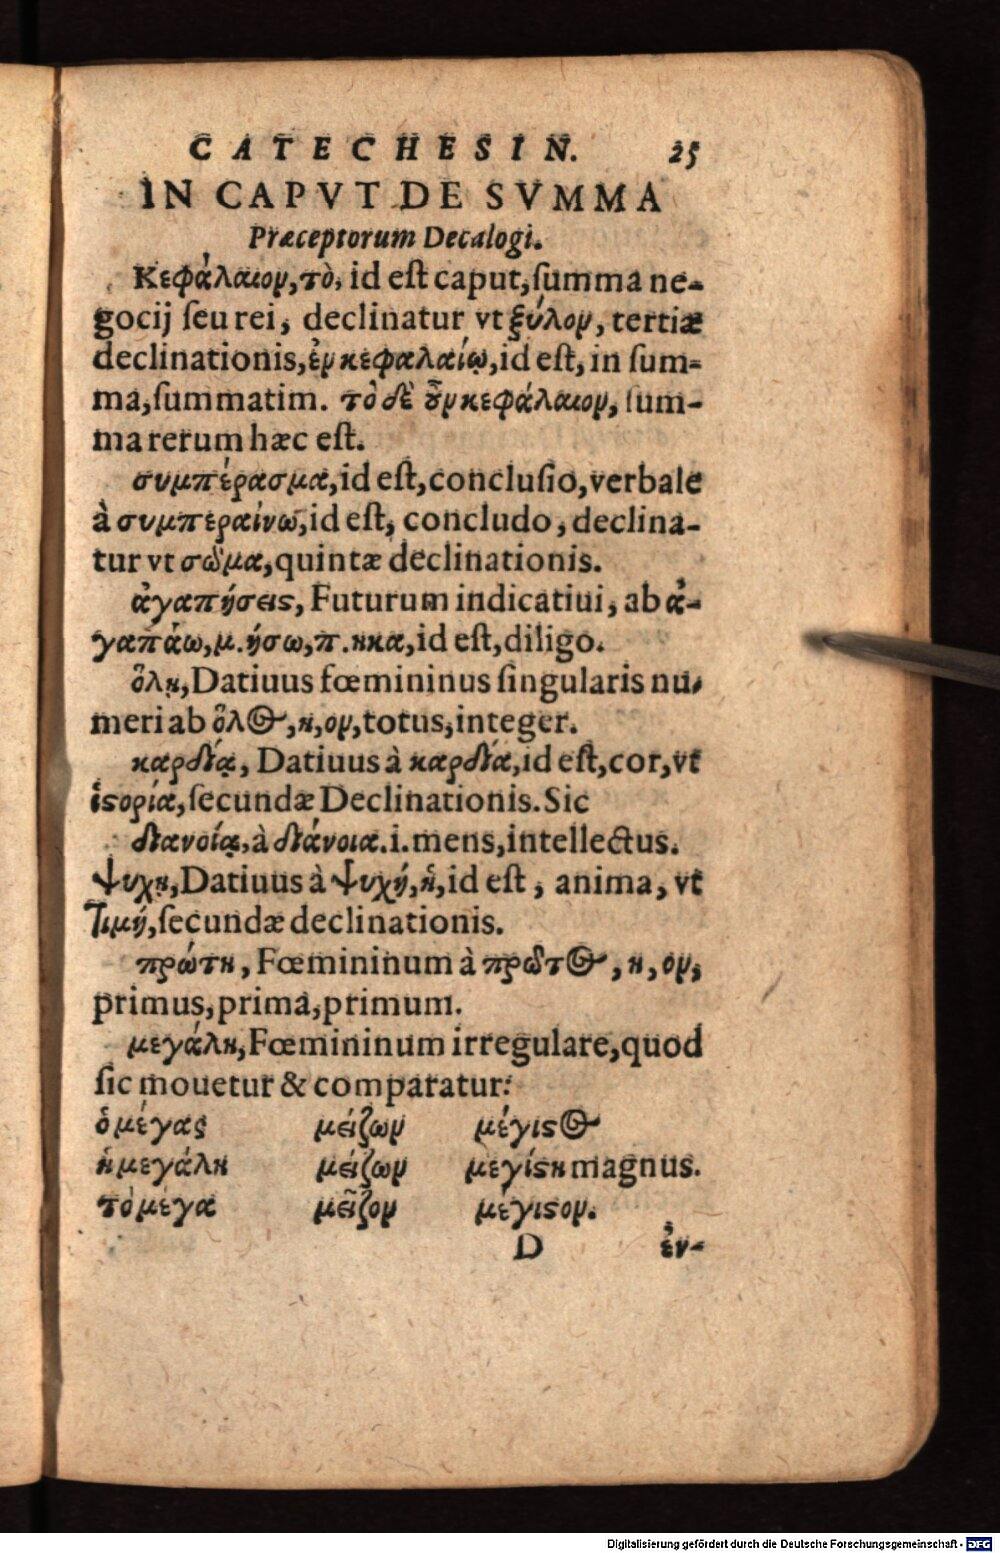 CATECHESIN. 25
IN CAPVT DE SVMMA
Præceptorum Decalogi.
Κεφάλαιον, τὸ, id eſt caput, ſumma ne-
gocij ſeu rei, declinatur vt ξύλον, tertiæ
declinationis, ἐν κεφαλαίῳ, id eſt, in ſum-
ma, ſummatim. τὸ δὲ οὖν κεφάλαιον, ſum-
ma rerum hæc eſt.
συμπέρασμα, id eſt, concluſio, verbale
à συμπεραίνω, id eſt, concludo, declina-
tur vt σῶμα, quintæ declinationis.
ἀγαπήσεις, Futurum indicatiui, ab ἀ-
γαπάω, μ. ήσω, π. ηκα, id eſt, diligo.
ὅλῃ, Datiuus fœmininus ſingularis nu-
meri ab ὅλος, η, ον, totus, integer.
καρδίᾳ, Datiuus à καρδία, id eſt, cor, vt
ἱστορία, ſecundæ Declinationis. Sic
διανοίᾳ, à διάνοια. i. mens, intellectus.
Ψυχῃ, Datiuus à Ψυχή, ἡ, id eſt, anima, vt
Τιμή, ſecundæ declinationis.
πρώτη, Fœmininum à πρῶτος, η, ον,
primus, prima, primum.
μεγάλη, Fœmininum irregulare, quod
ſic mouetur & comparatur:
ὁ μέγας μείζων μέγιστος
ἡ μεγάλη μείζων μεγίστη magnus.
τὸ μέγα μεῖζον μέγιστον.
D ἐν-
Digitalisierung gefördert durch die Deutsche Forschungsgemeinschaft - DFG